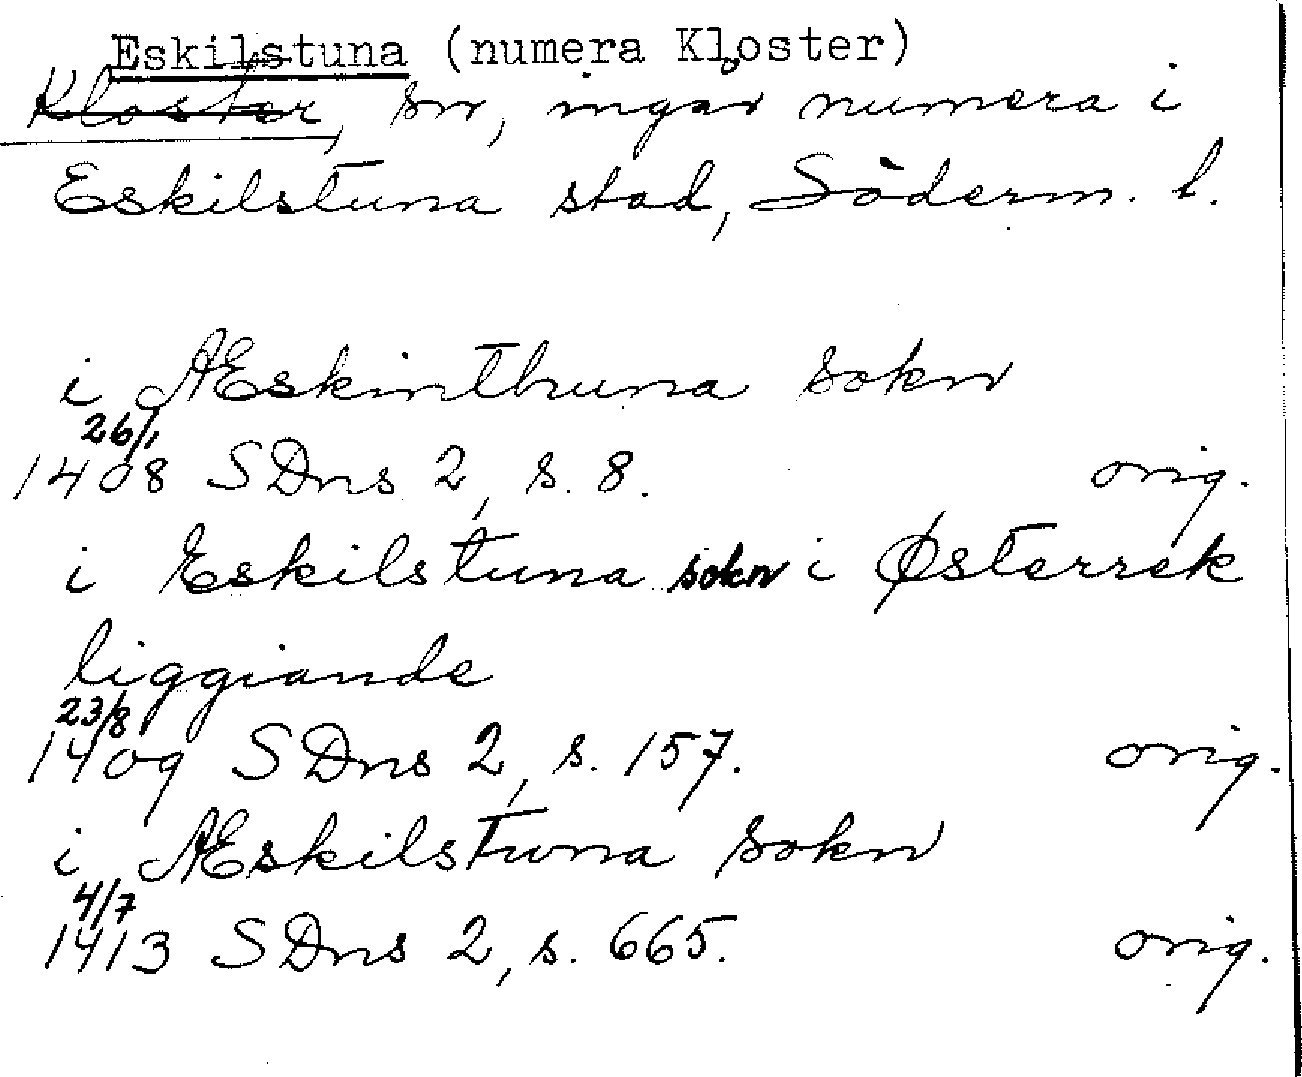 Eskilstuna (numera Kloster)
Kloster, sn, ingår numera i
Eskilstuna stad, Söderm. l.
i Æskinthuna sokn
26/1
1408 SDns 2, s. 8. orig.
i Eskilstuna sokn i Østerrek
liggiande
23/8
1409 SDns 2, s. 157. orig.
i Æskilstuna sokn
4/7
1413 SDns 2, s. 665. orig.